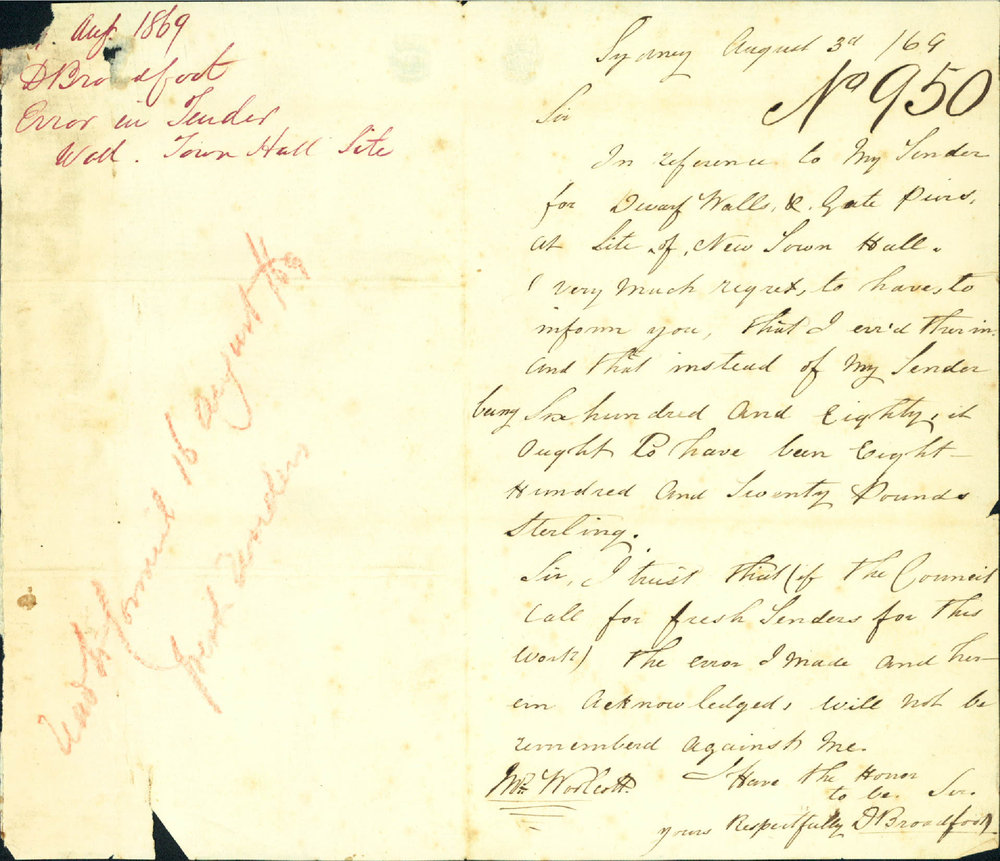 Aug. 1869
D Broadfoot
Error in Tender
Wall. Town Hall Site
Read in Council 16 August /69
fresh Tenders
Sydney August 3d /69
No 950
Sir
In reference to My Tender
for Dwarf Walls, & Gate Piers,
at Site of New Town Hall.
I very much regret, to have, to
inform you, that I err'd therin
and that instead of My Tender
being Six hundred and Eighty, it
Ought to have been Eight-
Hundred and Twenty Pounds
Sterling.
Sir, I trust that (if the Council
Call for fresh Tenders for this
Work) the error I made and her-
ein Acknowledged, will not be
rememberd against Me.
I Have the Honor
to be Sir
yours Respectfully D Broadfoot
Mr Woolcott.